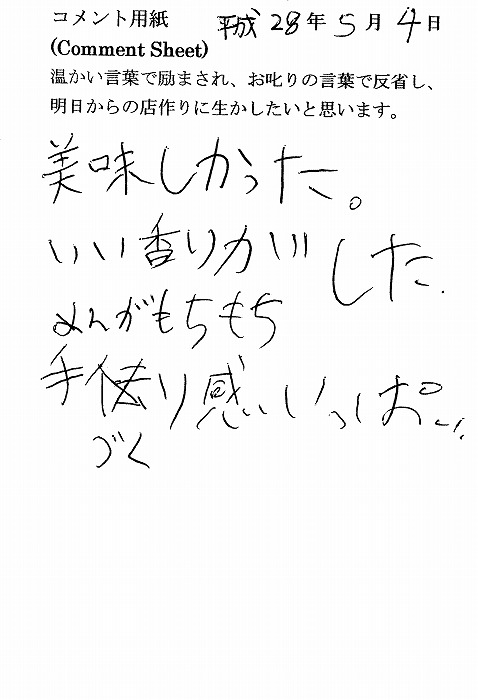 コメント用紙 平成28年5月4日
(Comment Sheet)
温かい言葉で励まされ、お叱りの言葉で反省し、
明日からの店作りに生かしたいと思います。
美味しかった。
いい香りがした.
めんがもちもち
手 り感いっぱい.
づく